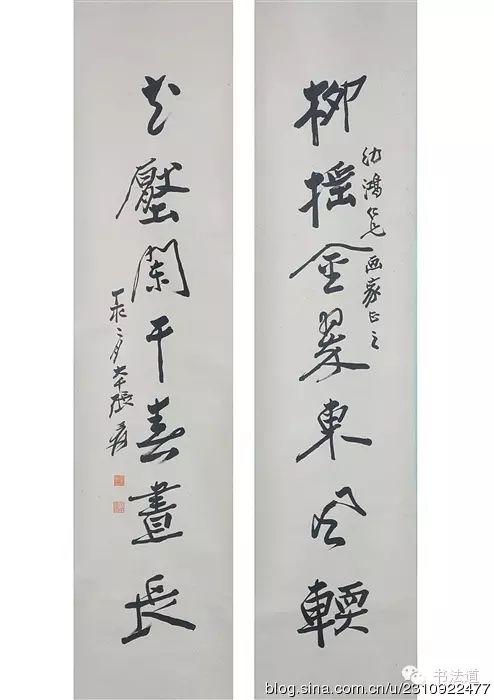 柳搖金翠東風輭
幼鴻仁兄画家正之
花壓闌干春晝長
丁亥二月大千張爰
书法道
blog.sina.com.cn/u/2310922477